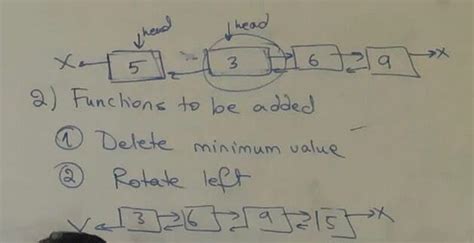 head head
X 5 3 6 9 X
2) Functions to be added
① Delete minimum value
② Rotate left
X 3 6 9 5 X